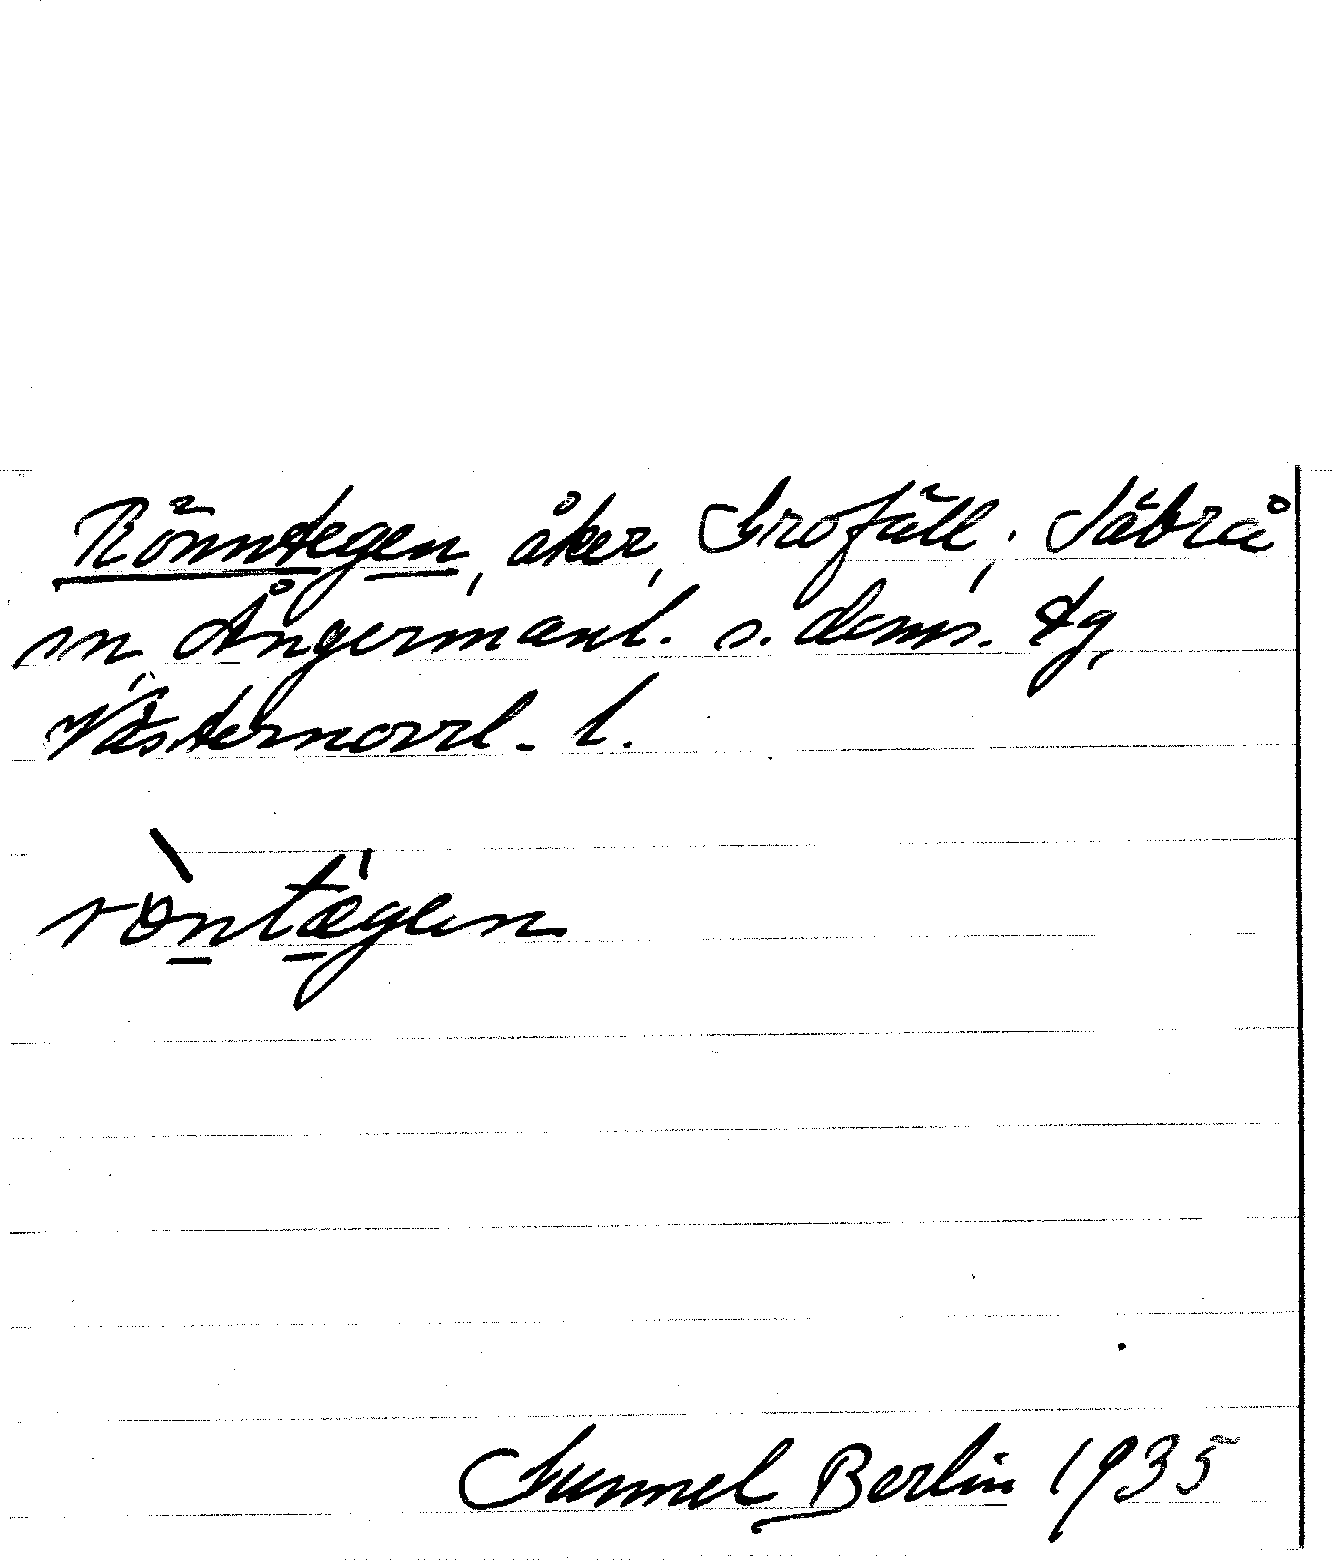 Rönntegen, åker, Grofäll, Säbrå
sn, Ångermanl. s. doms. tg,
Västernorrl. l.
ròntægen
Gunnel Berlin 1935